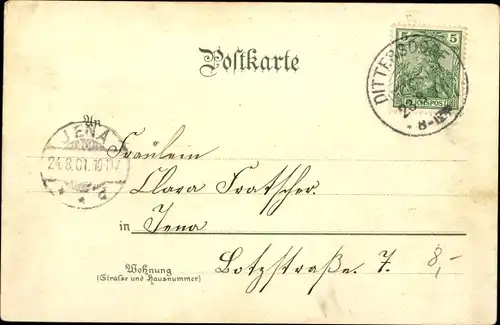 5
REICHSPOST
Postkarte
DITTERSDORF
An
JENA
24.8.01.10-11V
* * d
Fräulein
Clara Tratscher.
in Jena
Wohnung
(Straße und Hausnummer)
Lotzstraße. 7. 8,-